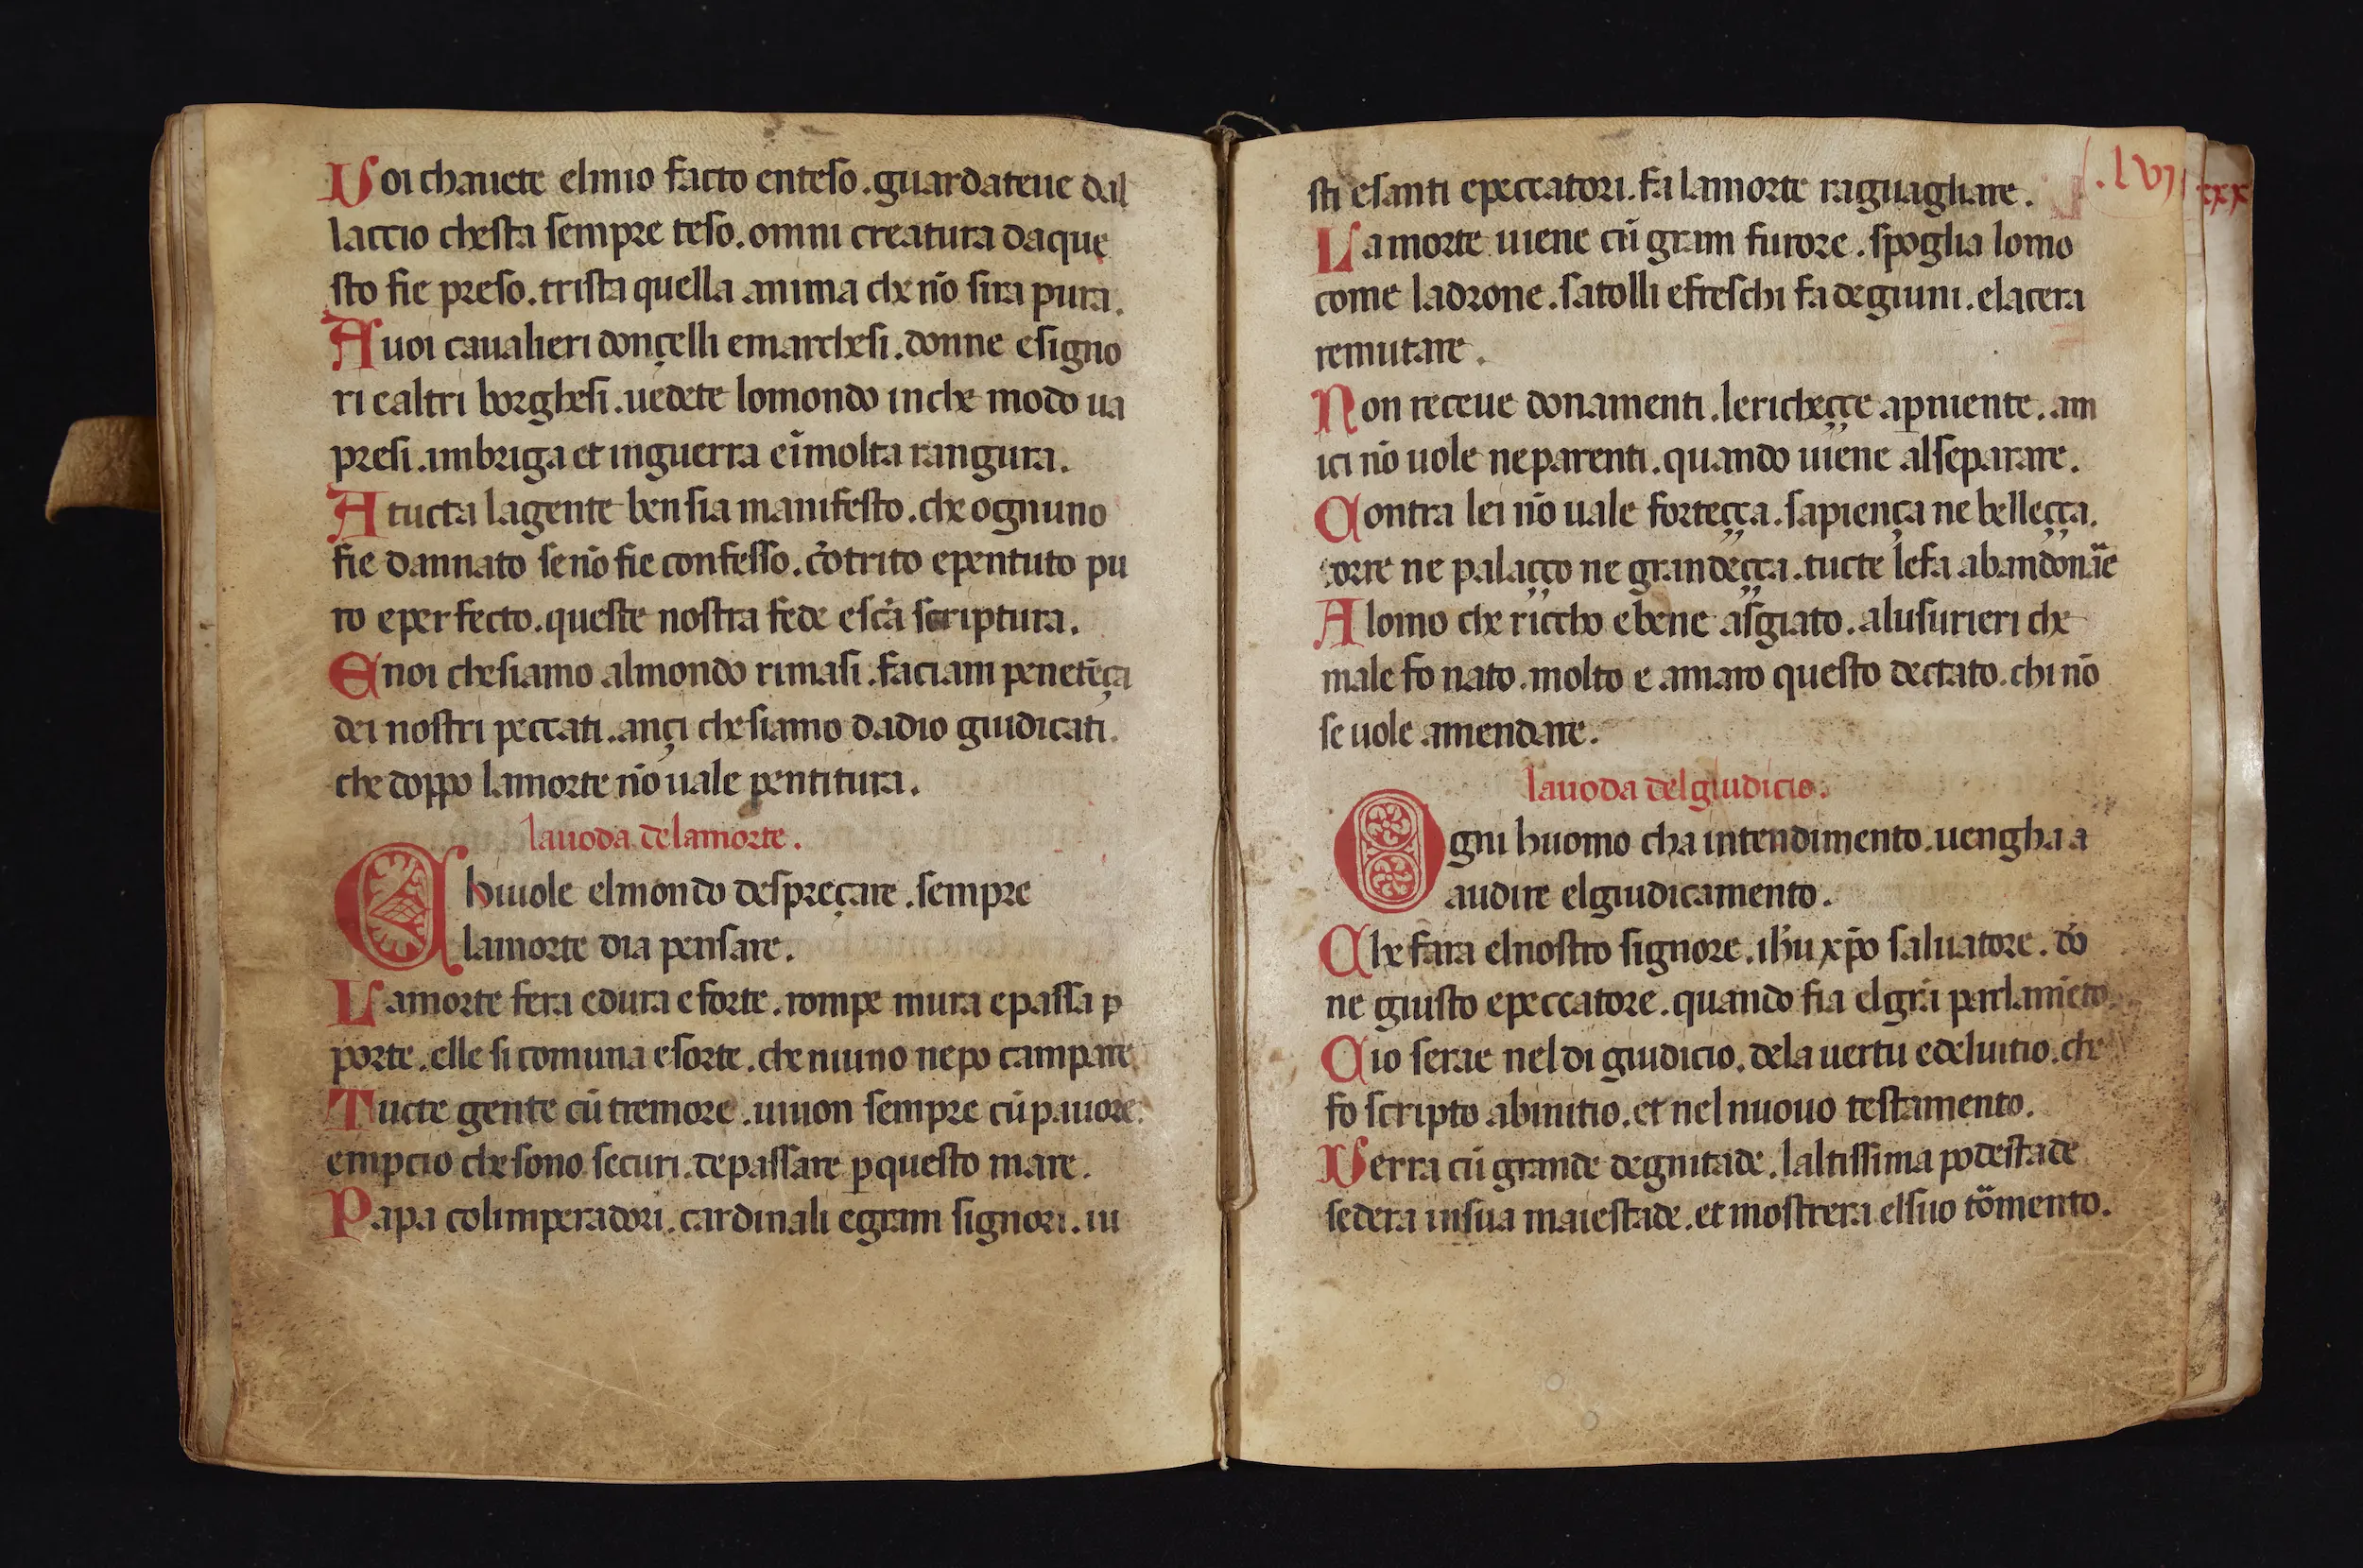 Voi chauete elmio facto enteso. guardateue dal
laccio chesta sempre teso. omni creatura daque
sto fie preso. trista quella anima che nō sira pura.
A uoi caualieri donçelli emarchesi. donne esigno
ri ealtri borghesi. uedete lomondo inche modo ua
presi. imbriga et inguerra eī molta rangura.
A tucta lagente ben sia manifesto. che ognuno
fie dannato senō fie confesso. cōtrito epentuto pu
ro eperfecto. queste nostra fede escā scriptura.
E noi chesiamo almondo rimasi. faciam penetēça
dei nostri peccati. ançi chesiamo dadio giudicati.
che doppo lamorte nō uale pentitura.
lauoda delamorte.
Chiuole elmondo despreçare. sempre
lamorte dia pensare.
Lamorte fera edura eforte. rompe mura epassa ꝑ
porte. elle si comuna esorte. che niuno nepo campare
Tucte gente cū tremore. uiuon sempre cū pauore.
empcio chesono securi. depassare ꝑ questo mare.
Papa colimperadori. cardinali egram signori. iu
sti esanti epeccatori. fa lamorte raguagliare.
.lvii
xxx
Lamorte uiene cū gram furore. spoglia lomo
come ladrone. satolli efreschi fa degiuni. elacera
remutare.
Non receue donamenti. lericheççe aꝑ niente. am
ici nō uole neparenti. quando uiene alseparare.
Contra lei nō uale forteçça. sapiença ne belleçça.
torre ne palaçço ne grandeçça. tucte lefa abandonāe
A lomo che riccho ebene asgiato. alusurieri che
male fo nato. molto e amaro questo dectato. chi nō
se uole amendare.
lauoda delgiudicio.
Ogni huomo cha intendimento. uengha a
audire elgiudicamento.
Che fara elnostro signore. ihū xp̄o saluatore. dō
ne giusto epeccatore. quando fia elgrā parlamēto.
Cio serae nel di giudicio. dela uertu edeluitio. che
fo scripto abinitio. et nel nuouo testamento.
Verra cū grande degnitade. laltissima podestade
sedera insua maiestade. et mostrera elsuo tōmento.